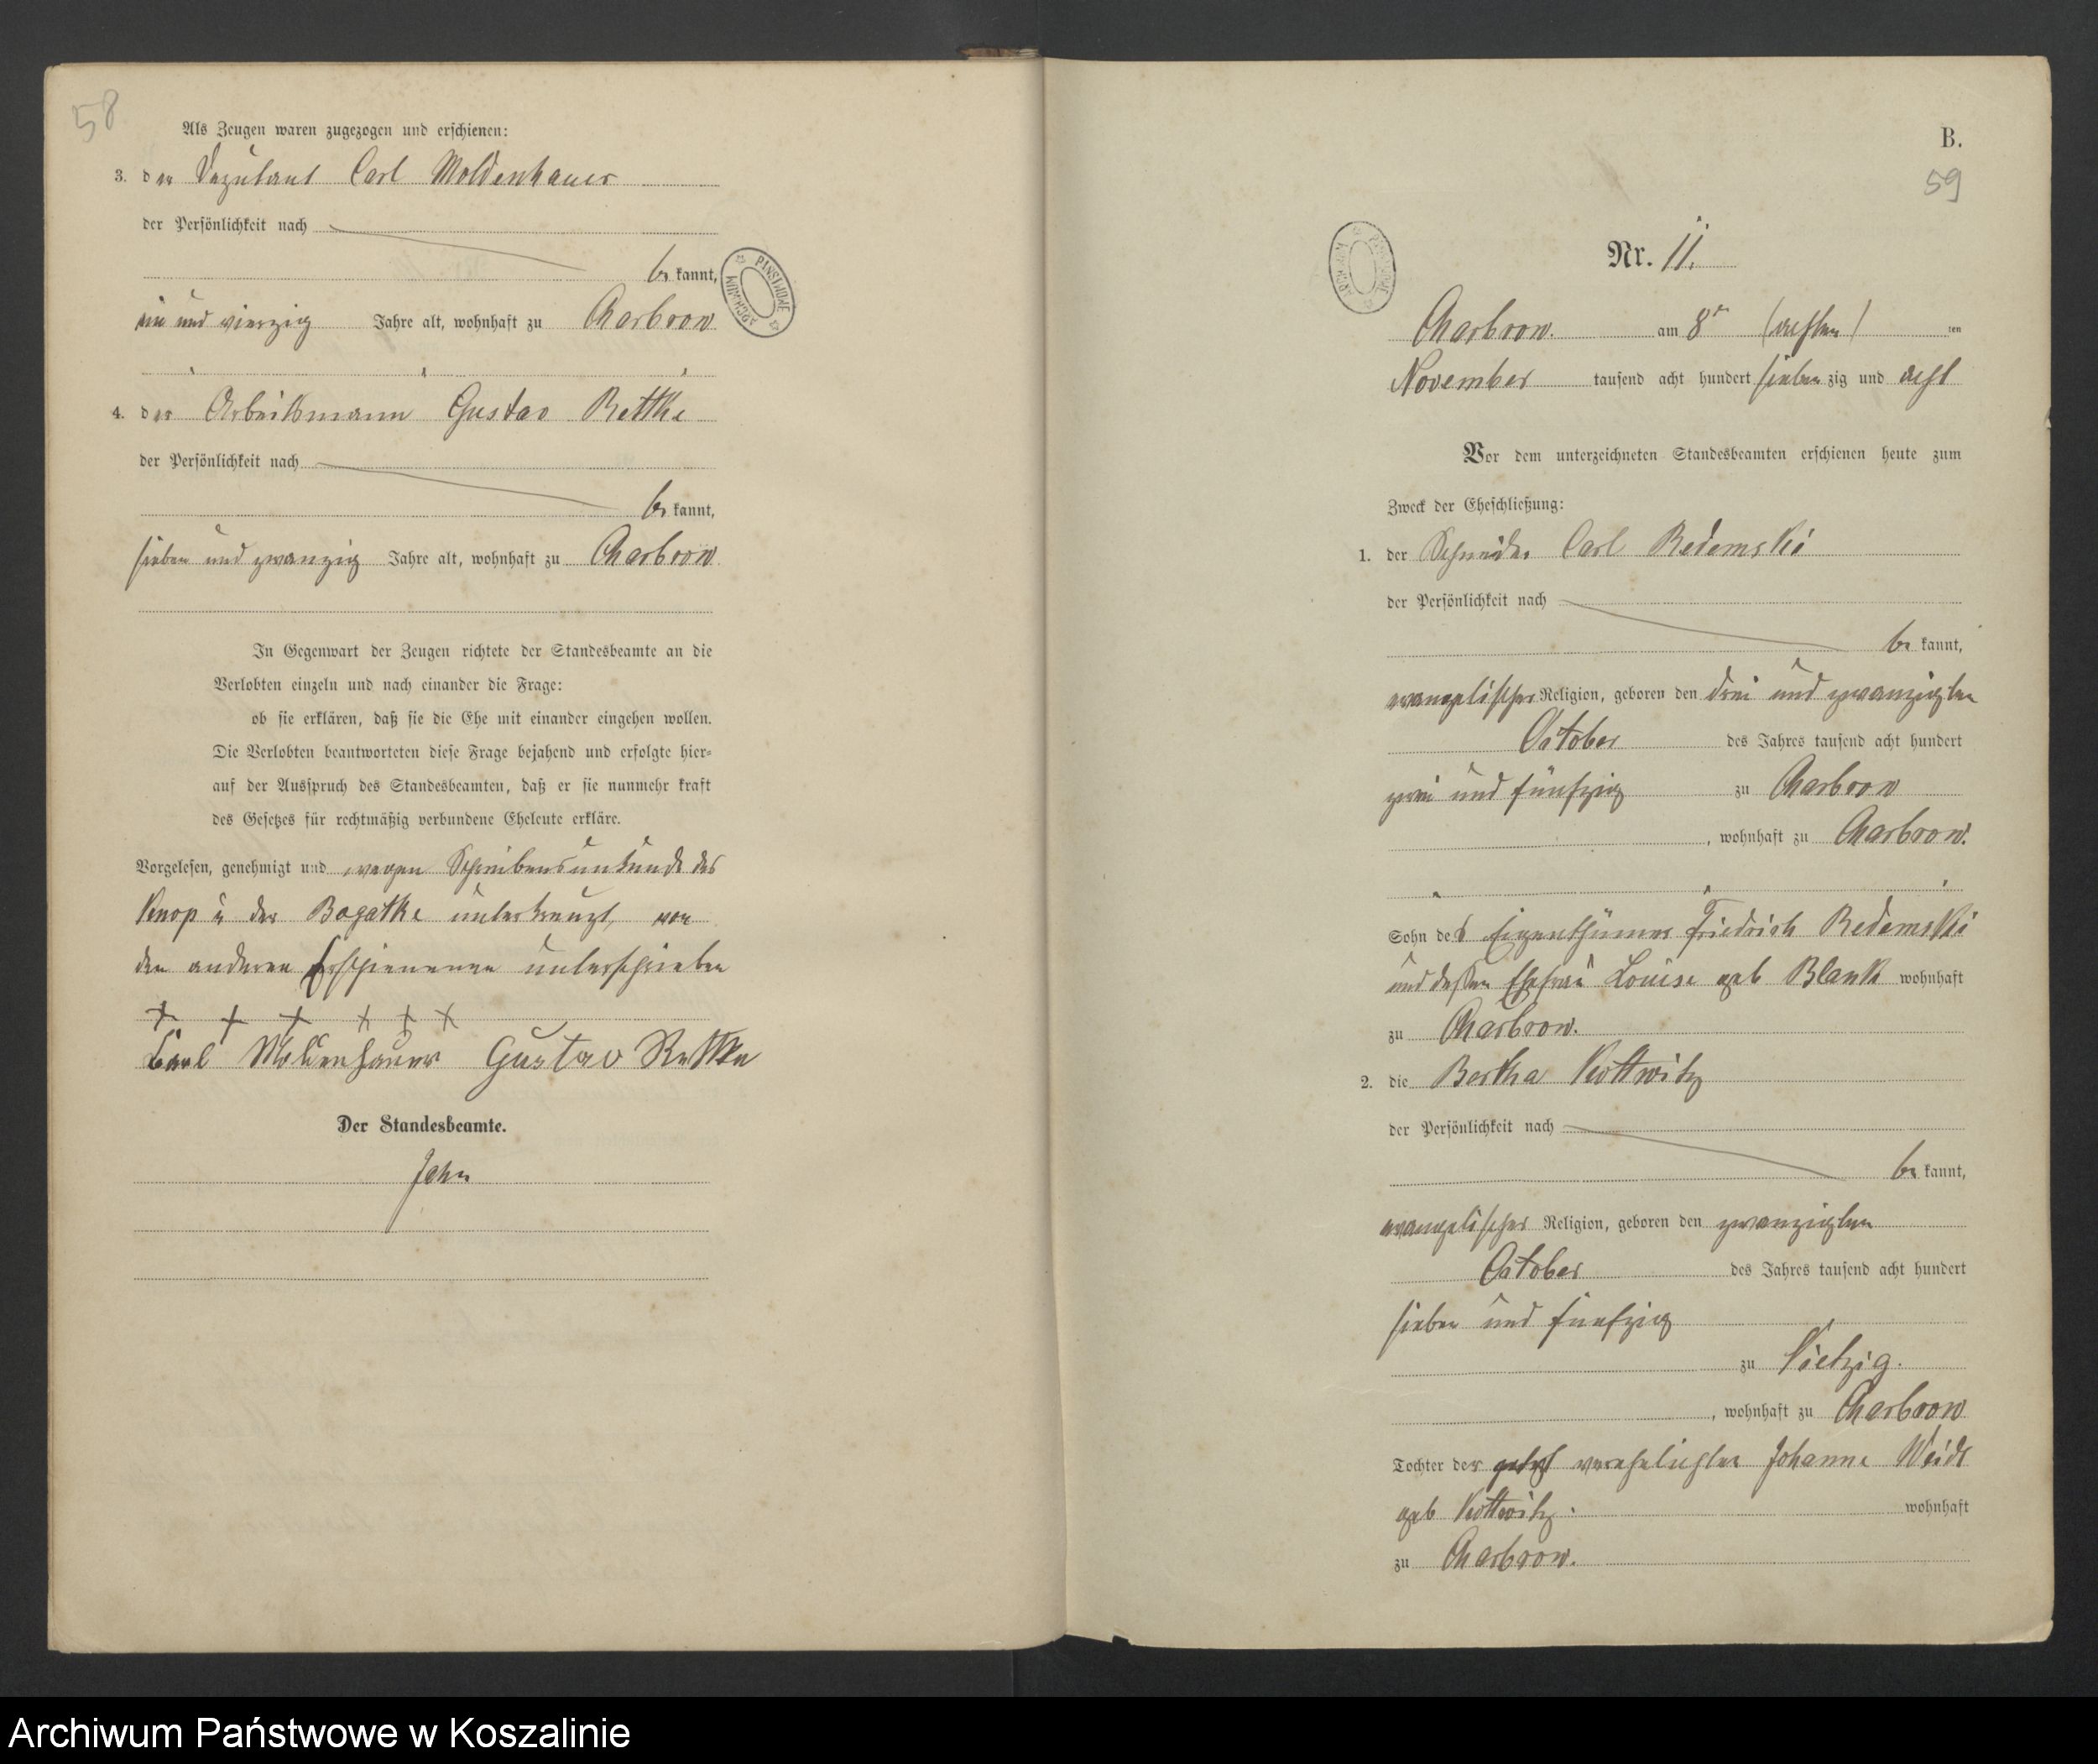 58
Als Zeugen waren zugezogen und erschienen:
3. der Deputant Carl Moldenhauer
der Persönlichkeit nach
be kannt,
ein und vierzig Jahre alt, wohnhaft zu Charbrow
4. der Arbeitsmann Gustav Rettke
der Persönlichkeit nach
be kannt,
sieben und zwanzig Jahre alt, wohnhaft zu Charbrow
In Gegenwart der Zeugen richtete der Standesbeamte an die
Verlobten einzeln und nach einander die Frage:
ob sie erklären, daß sie die Ehe mit einander eingehen wollen.
Die Verlobten beantworteten diese Frage bejahend und erfolgte hier-
auf der Ausspruch des Standesbeamten, daß er sie nunmehr kraft
des Gesetzes für rechtmäßig verbundene Eheleute erkläre.
Vorgelesen, genehmigt und wegen Schreibensunkunde des
Knop u der Bagatke unterkreuzt, von
den anderen Erschienenen unterschrieben
+ + + + + +
Carl Moldenhauer Gustav Rettke
Der Standesbeamte.
John
ARCHIWUM PAŃSTWOWE
B.
59
ARCHIWUM PAŃSTWOWE
Nr. 11.
Charbrow. am 8ten (achten) ten
November tausend acht hundert siebenzig und acht
Vor dem unterzeichneten Standesbeamten erschienen heute zum
Zweck der Eheschließung:
1. der Schneider Carl Redemski
der Persönlichkeit nach
be kannt,
evangelischer Religion, geboren den drei und zwanzigsten
October des Jahres tausend acht hundert
zwei und fünfzig zu Charbrow
, wohnhaft zu Charbrow.
Sohn des Eigenthümer Friedrich Redemski
und dessen Ehefrau Louise geb Blank wohnhaft
zu Charbrow.
2. die Bertha Kottwitz
der Persönlichkeit nach
be kannt,
evangelischer Religion, geboren den zwanzigsten
October des Jahres tausend acht hundert
sieben und fünfzig
zu Vietzig.
, wohnhaft zu Charbrow
Tochter der jetzt verehelichten Johanne Weidt
geb Kottwitz. wohnhaft
zu Charbrow.
Archiwum Państwowe w Koszalinie